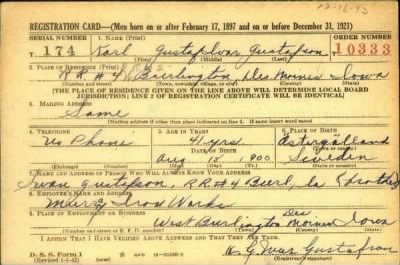 12-16-43
REGISTRATION CARD—(Men born on or after February 17, 1897 and on or before December 31, 1921)
SERIAL NUMBER 1. NAME (Print) ORDER NUMBER
T 174 Karl Gustaf Ivar Gustafson 10333
(First) (Middle) (Last)
2. PLACE OF RESIDENCE (Print)
R.R. #4 Burlington, Des Moines Iowa
(Number and street) (Town, township, village, or city) (County) (State)
[THE PLACE OF RESIDENCE GIVEN ON THE LINE ABOVE WILL DETERMINE LOCAL BOARD
JURISDICTION; LINE 2 OF REGISTRATION CERTIFICATE WILL BE IDENTICAL]
3. MAILING ADDRESS
Same
[Mailing address if other than place indicated on line 2. If same insert word same]
4. TELEPHONE 5. AGE IN YEARS 6. PLACE OF BIRTH
No Phone 41 yrs. Östergötland
DATE OF BIRTH (Town or county)
Aug 18, 1900 Sweden
(Mo.) (Day) (Yr.) (State or country)
7. NAME AND ADDRESS OF PERSON WHO WILL ALWAYS KNOW YOUR ADDRESS
Swan Gustafson, R.R #4 Burl, Ia (brother)
8. EMPLOYER'S NAME AND ADDRESS
Murray Iron Works
9. PLACE OF EMPLOYMENT OR BUSINESS
West Burlington Des Moines Iowa
(Number and street or R. F. D. number) (Town) (County) (State)
I AFFIRM THAT I HAVE VERIFIED ABOVE ANSWERS AND THAT THEY ARE TRUE.
D. S. S. Form 1
(Revised 1-1-42) (over)
K. G. Ivar Gustafson